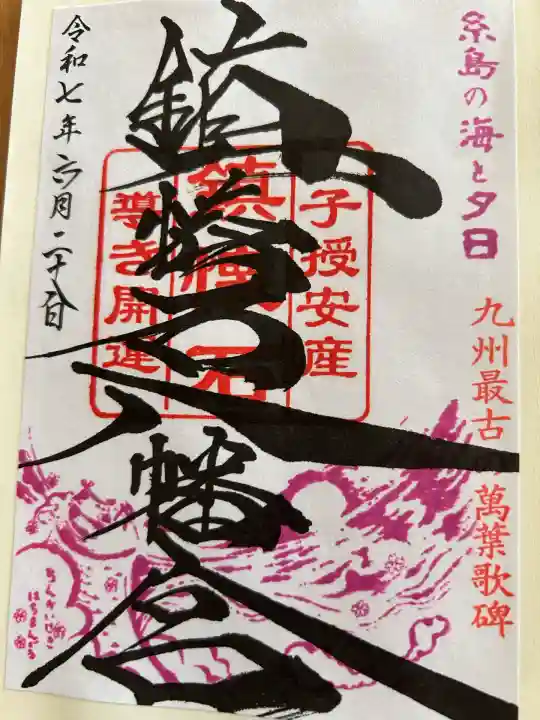 糸島の海と夕日
九州最古
萬葉歌碑
子授安産
鎮懐石
導き開運
鎮懐石八幡宮
令和七年六月二十日
ちんかいせき
はちまんぐう